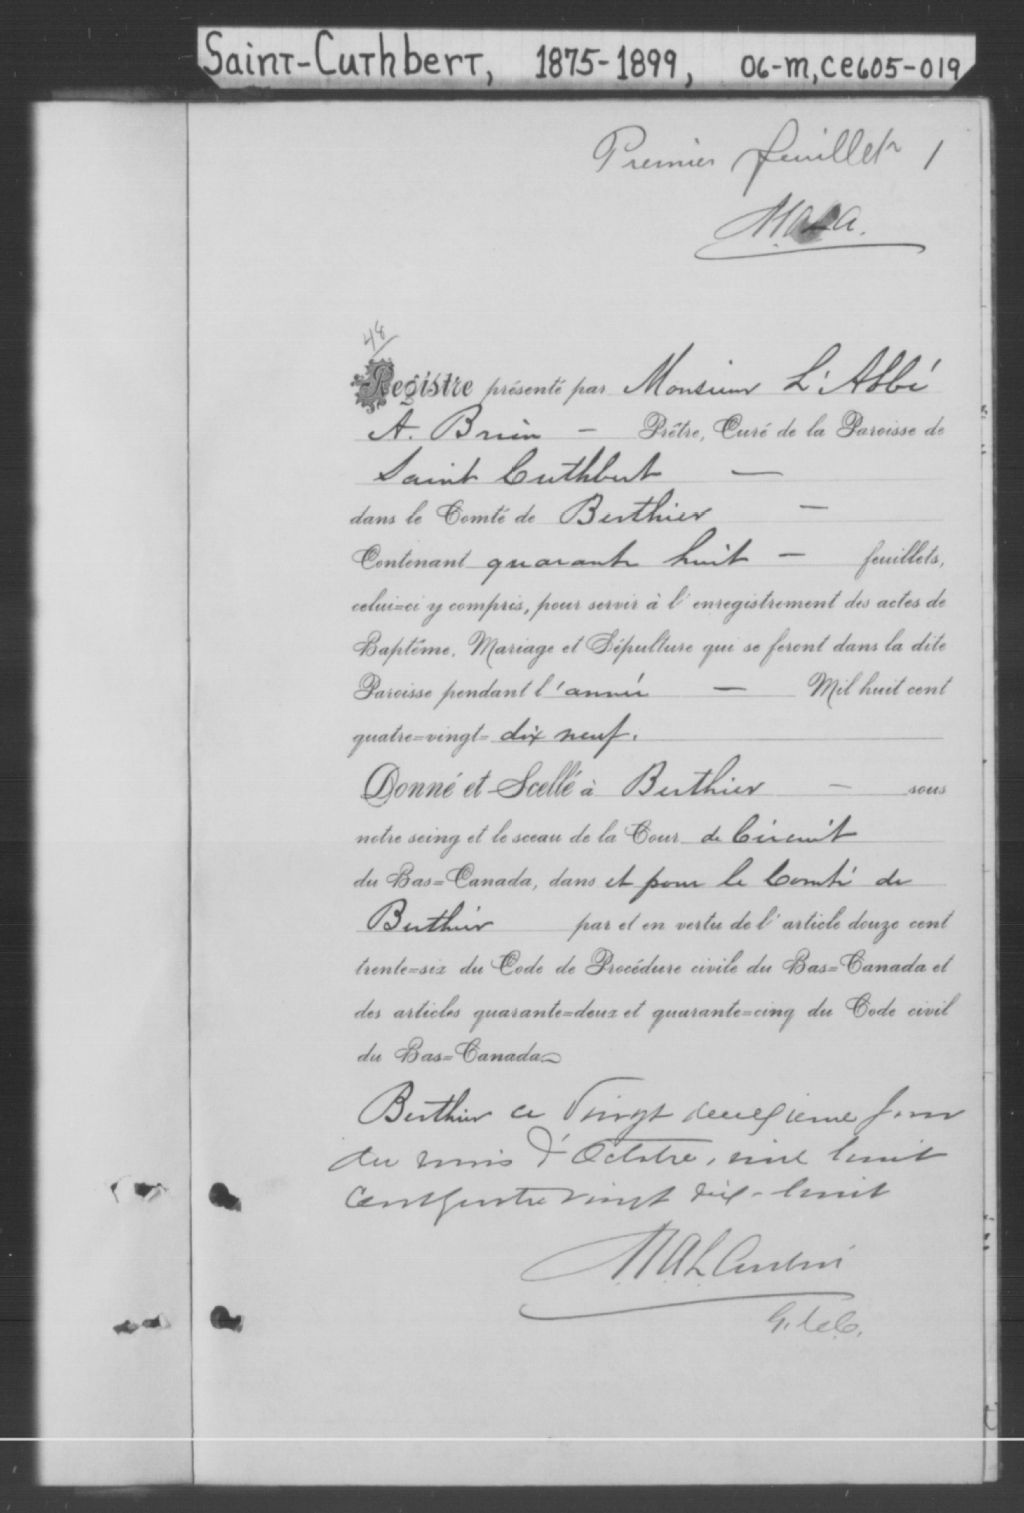 Saint-Cuthbert, 1875-1899, 06-M, CE605-019
Premier feuillet 1
48
Registre présenté par Monsieur L'Abbé
A. Brien - Prêtre, Curé de la Paroisse de
Saint Cuthbert -
dans le Comté de Berthier -
Contenant quarante huit - feuillets,
celui=ci y compris, pour servir à l'enregistrement des actes de
Baptême, Mariage et Sépulture qui se feront dans la dite
Paroisse pendant l'année - Mil huit cent
quatre=vingt= dix neuf.
Donné et Scellé à Berthier - sous
notre seing et le sceau de la Cour de Circuit
du Bas=Canada, dans et pour le Comté de
Berthier par et en vertu de l'article douze cent
trente=six du Code de Procédure civile du Bas=Canada et
des articles quarante=deux et quarante=cinq du Code civil
du Bas=Canada
Berthier ce vingt deuxieme jour
du mois d'Octobre, mil huit
cent quatre vingt dix-huit